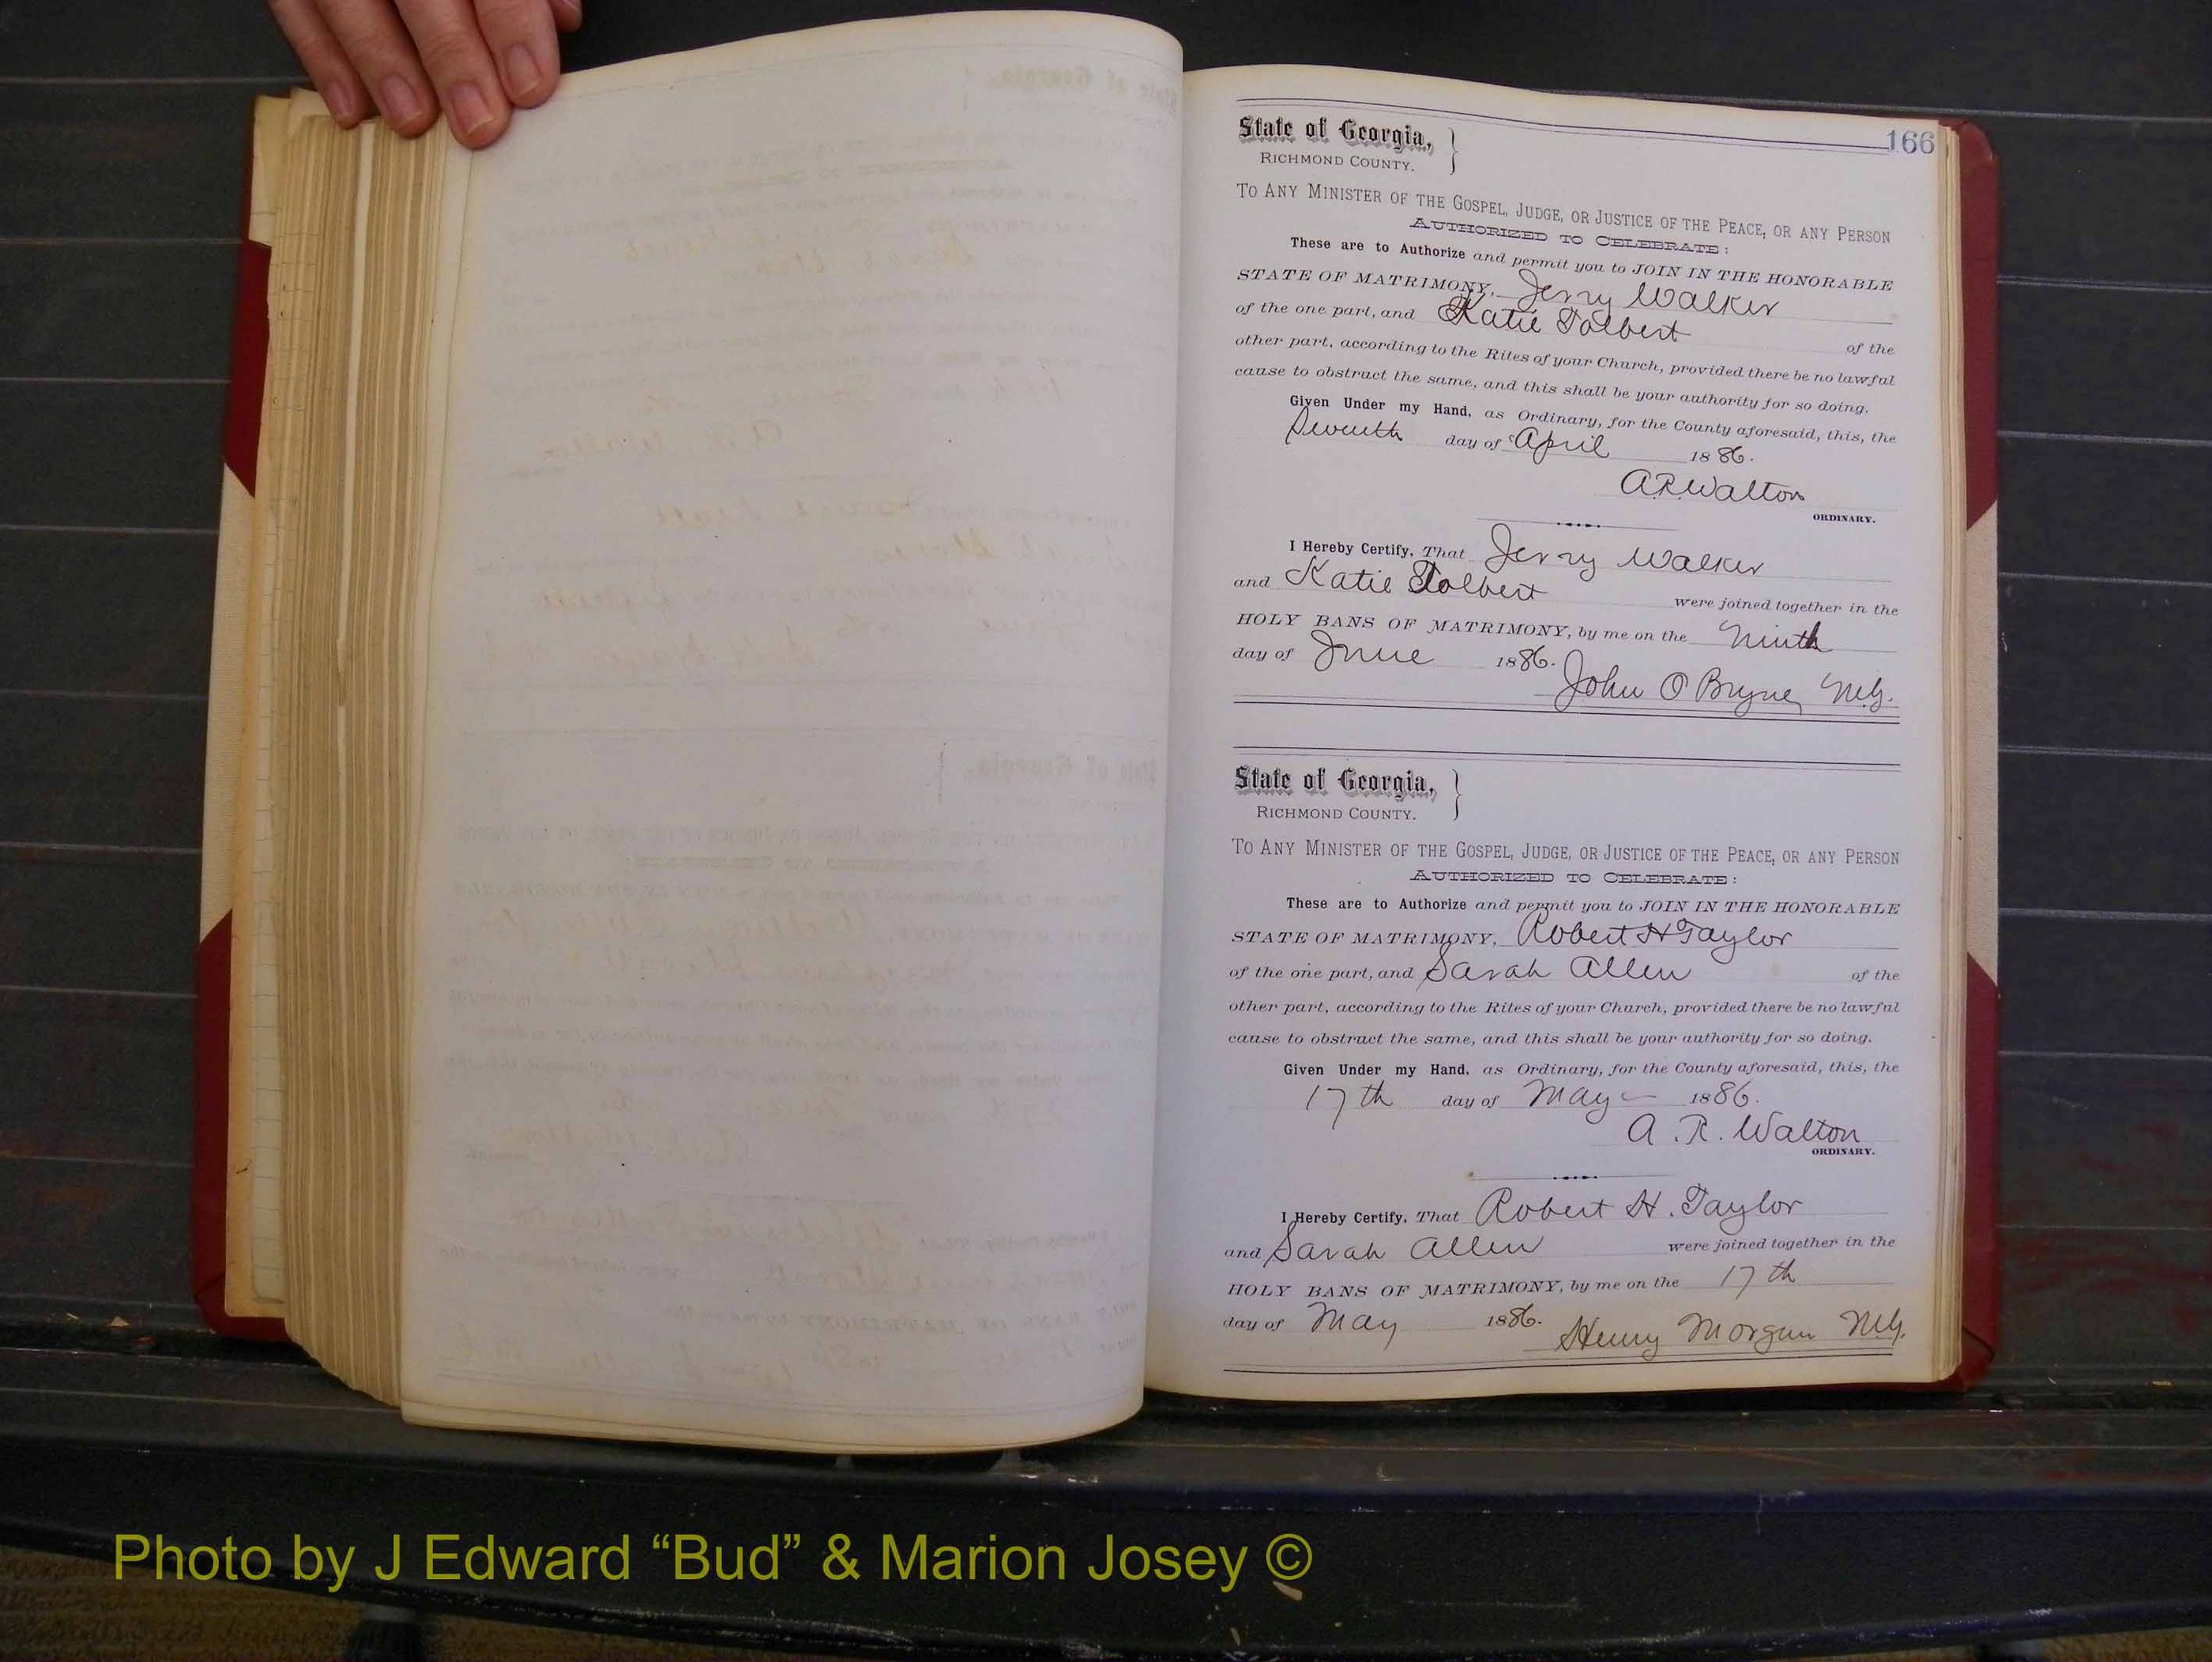 166
State of Georgia,
RICHMOND COUNTY.
TO ANY MINISTER OF THE GOSPEL, JUDGE, OR JUSTICE OF THE PEACE, OR ANY PERSON
AUTHORIZED TO CELEBRATE:
These are to Authorize and permit you to JOIN IN THE HONORABLE
STATE OF MATRIMONY, Jerry Walker
of the one part, and Katie Tolbert of the
other part, according to the Rites of your Church, provided there be no lawful
cause to obstruct the same, and this shall be your authority for so doing.
Given Under my Hand, as Ordinary, for the County aforesaid, this, the
Seventh day of April 1886.
A.R. Walton
ORDINARY.
I Hereby Certify, That Jerry Walker
and Katie Tolbert were joined together in the
HOLY BANS OF MATRIMONY, by me on the Ninth
day of June 1886.
John O Bryne M.G.
State of Georgia,
RICHMOND COUNTY.
TO ANY MINISTER OF THE GOSPEL, JUDGE, OR JUSTICE OF THE PEACE, OR ANY PERSON
AUTHORIZED TO CELEBRATE:
These are to Authorize and permit you to JOIN IN THE HONORABLE
STATE OF MATRIMONY, Robert H Taylor
of the one part, and Sarah Allen of the
other part, according to the Rites of your Church, provided there be no lawful
cause to obstruct the same, and this shall be your authority for so doing.
Given Under my Hand, as Ordinary, for the County aforesaid, this, the
17th day of May 1886.
A. R. Walton
ORDINARY.
I Hereby Certify, That Robert H. Taylor
and Sarah Allen were joined together in the
HOLY BANS OF MATRIMONY, by me on the 17th
day of May 1886.
Henry Morgan M.G.
Photo by J Edward “Bud” & Marion Josey ©